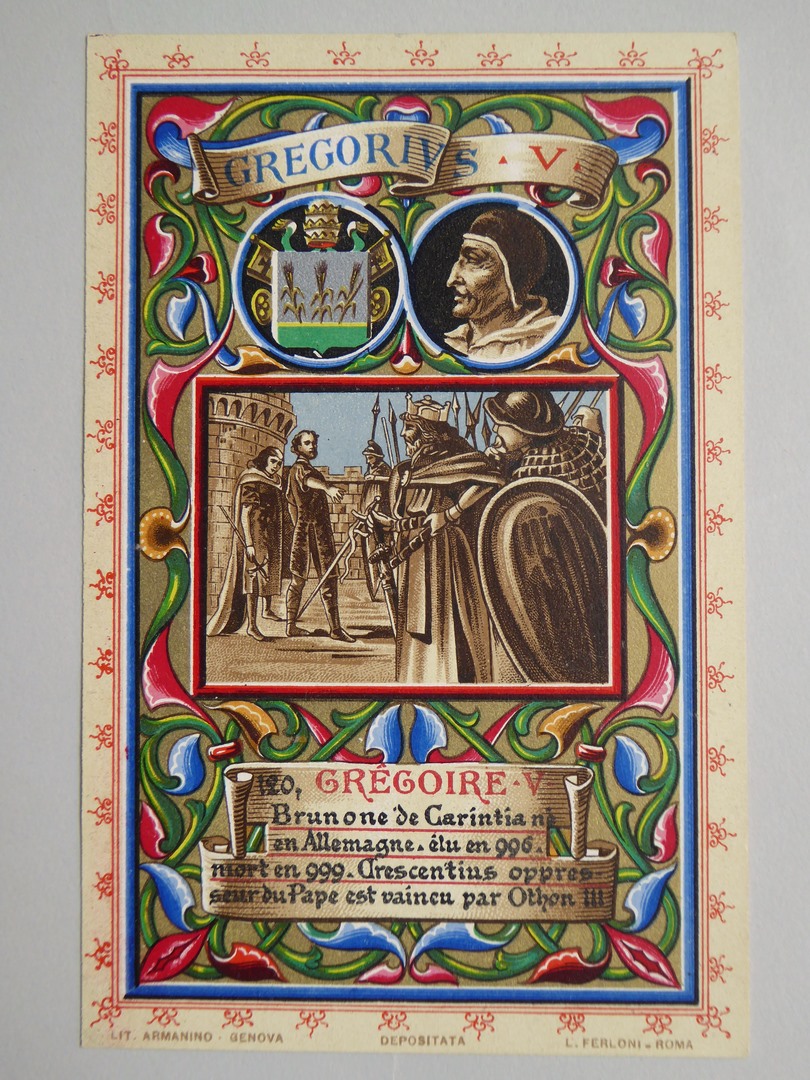 GREGORIVS · V ·
120, GRÊGOIRE · V
Brunone de Carintia né
en Allemagne. élu en 996.
mort en 999. Crescentius oppres
seur du Pape est vaincu par Othon III
LIT. ARMANINO - GENOVA DEPOSITATA L. FERLONI - ROMA